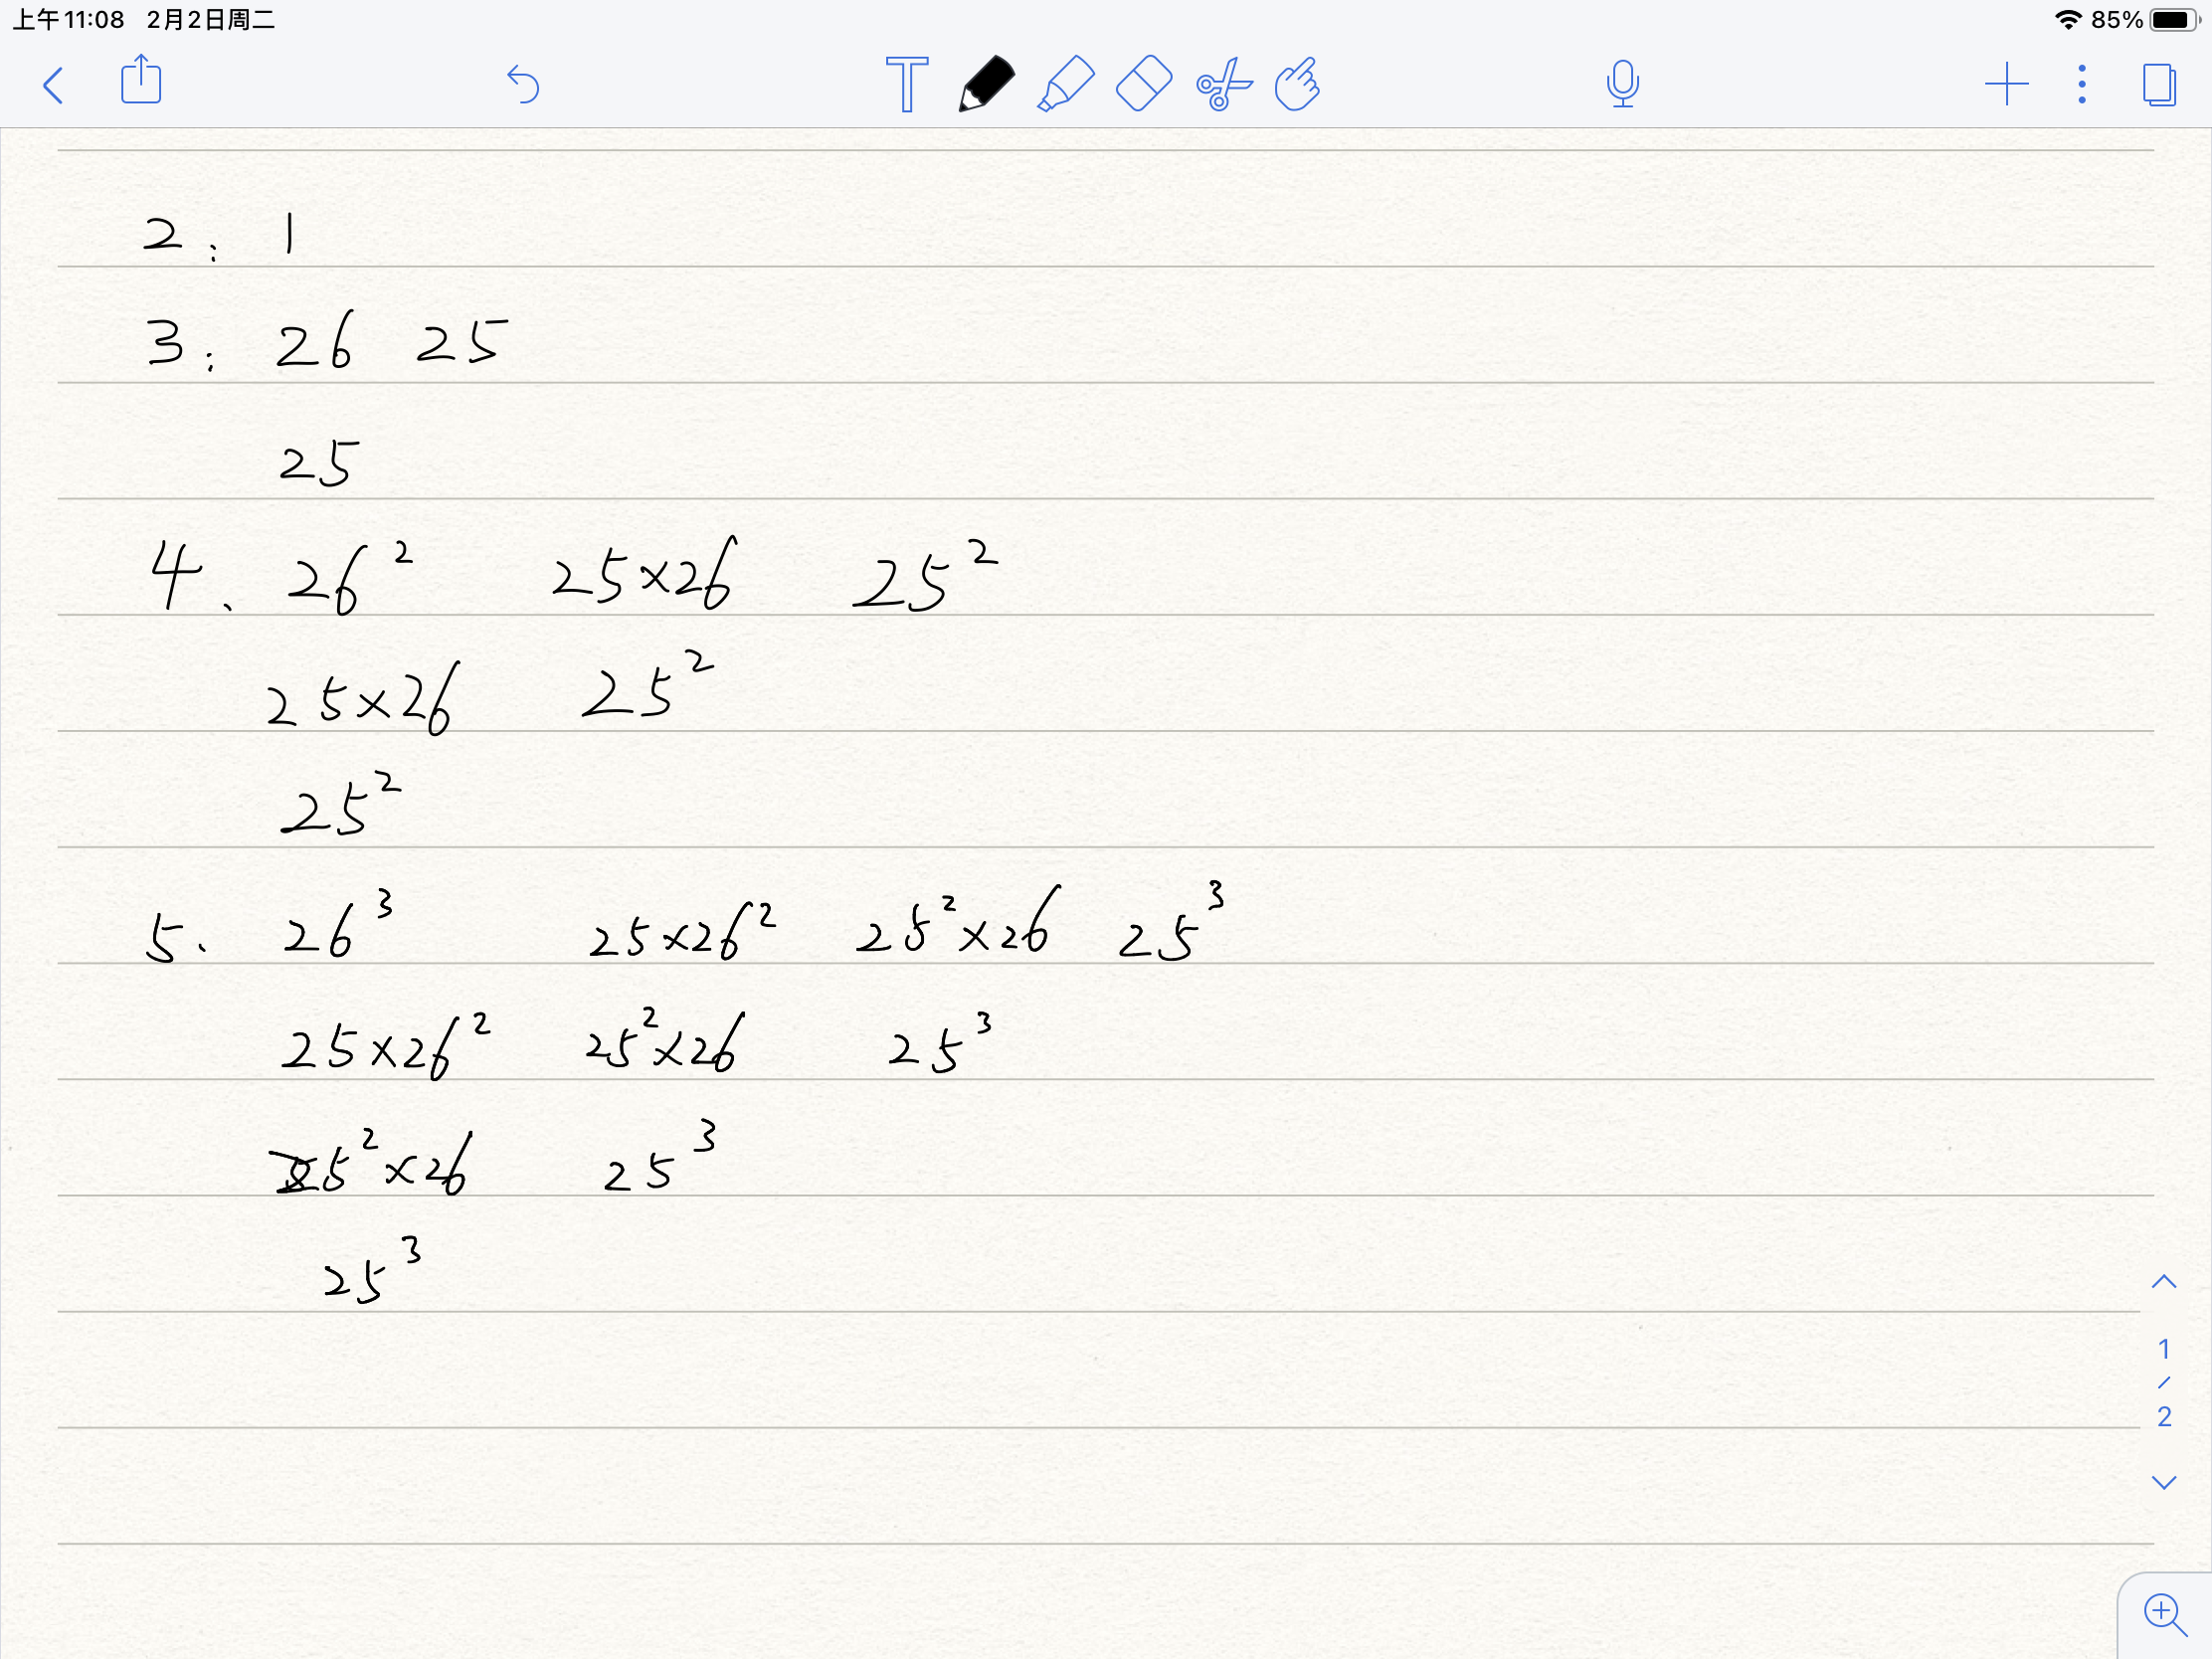 上午11:08 2月2日周二 85%
T
2: 1
3: 26 25
25
4、 26² 25×26 25²
25×26 25²
25²
5. 26³ 25×26² 25²×26 25³
25×26² 25²×26 25³
25²×26 25³
25³
1
/
2